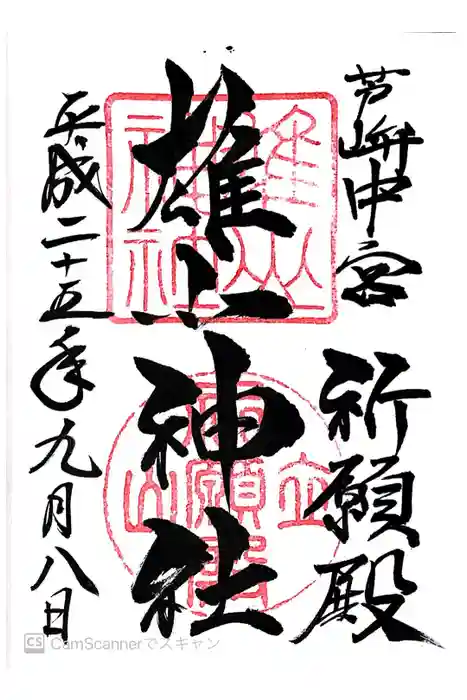 芦峅中宮
祈願殿
雄山神社
平成二十五年九月八日
雄山神社
立山
祈願殿
CS CamScannerでスキャン